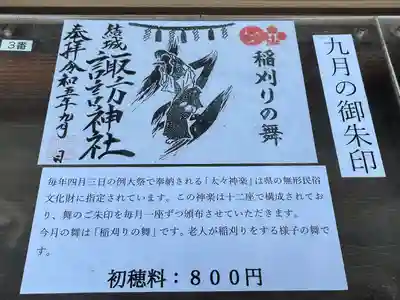 3番
奉拝
令和五年九月 日
結城
諏訪神社
稲刈りの舞
九月の御朱印
毎年四月三日の例大祭で奉納される「太々神楽」は県の無形民俗
文化財に指定されています。この神楽は十二座で構成されてお
り、舞のご朱印を毎月一座ずつ頒布させていただきます。
今月の舞は「稲刈りの舞」です。老人が稲刈りをする様子の舞で
す。
初穂料：８００円